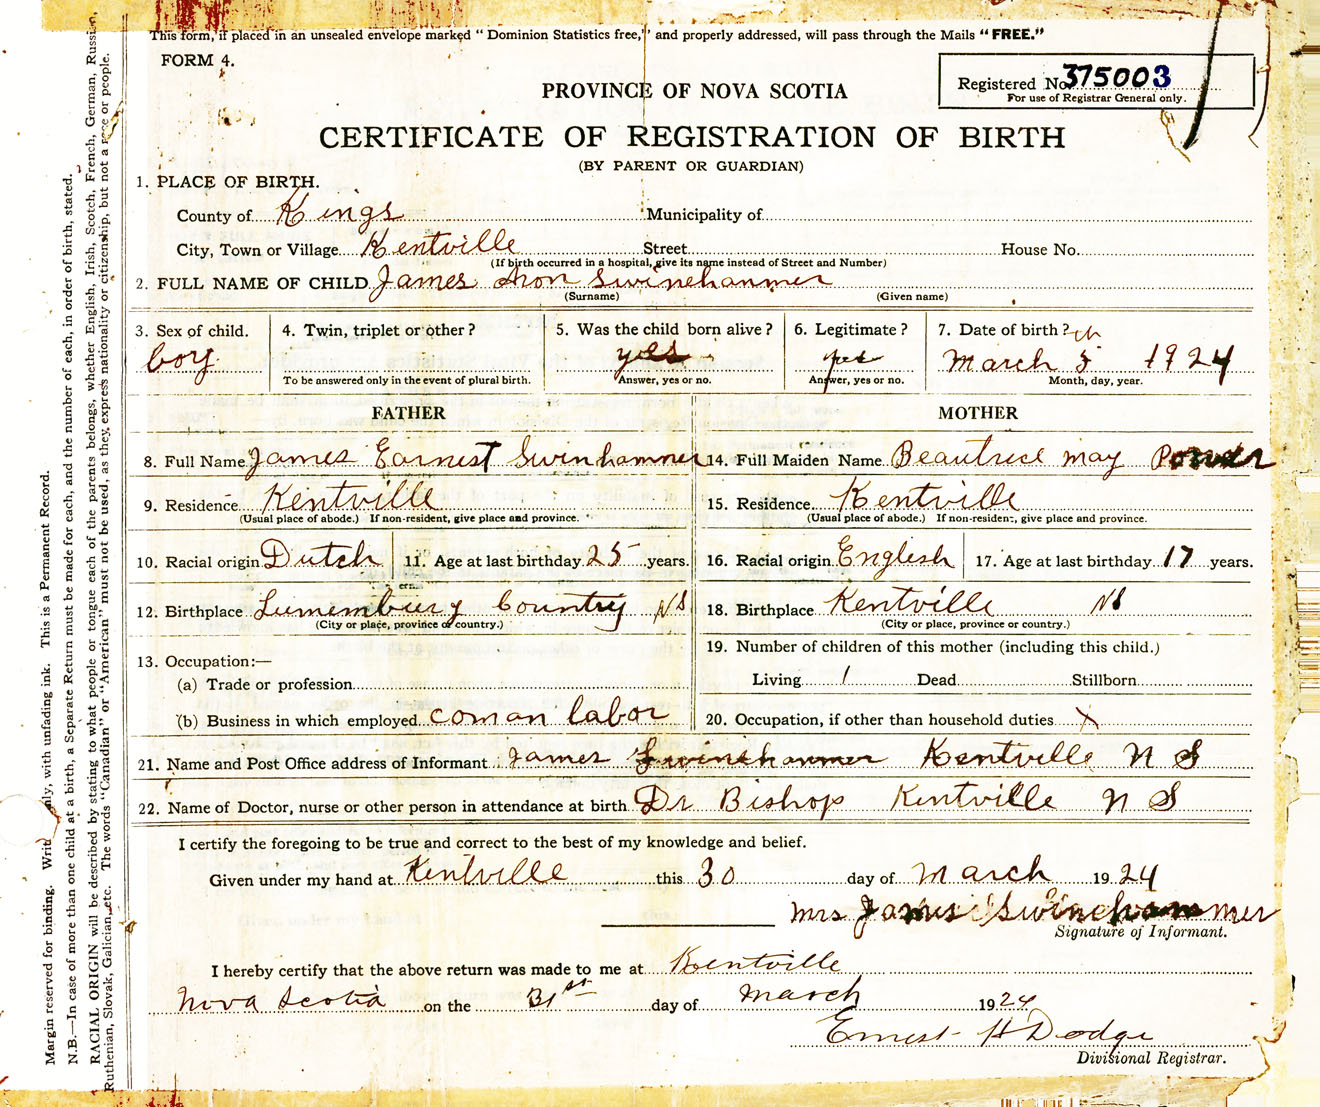 This form, if placed in an unsealed envelope marked "Dominion Statistics free," and properly addressed, will pass through the Mails "FREE."
FORM 4.
Registered No. 375003
For use of Registrar General only.
PROVINCE OF NOVA SCOTIA
CERTIFICATE OF REGISTRATION OF BIRTH
(BY PARENT OR GUARDIAN)
1. PLACE OF BIRTH.
County of Kings Municipality of
City, Town or Village Kentville Street House No.
(If birth occurred in a hospital, give its name instead of Street and Number)
2. FULL NAME OF CHILD James Aron Swinehanmer
(Surname) (Given name)
3. Sex of child. 4. Twin, triplet or other? 5. Was the child born alive? 6. Legitimate? 7. Date of birth?
boy yes yes March 5th 1924
To be answered only in the event of plural birth. Answer, yes or no. Answer, yes or no. Month, day, year.
FATHER MOTHER
8. Full Name James Earnest Swinhammer 14. Full Maiden Name Beautrice may Power
9. Residence Kentville 15. Residence Kentville
(Usual place of abode.) If non-resident, give place and province. (Usual place of abode.) If non-resident, give place and province.
10. Racial origin Dutch 11. Age at last birthday 25 years. 16. Racial origin English 17. Age at last birthday 17 years.
12. Birthplace Lunemburg Country NS 18. Birthplace Kentville NS
(City or place, province or country.) (City or place, province or country.)
13. Occupation:— 19. Number of children of this mother (including this child.)
(a) Trade or profession Living 1 Dead Stillborn
(b) Business in which employed coman labor 20. Occupation, if other than household duties X
21. Name and Post Office address of Informant James Swinehammer Kentville N S
22. Name of Doctor, nurse or other person in attendance at birth Dr Bishop Kentville N S
I certify the foregoing to be true and correct to the best of my knowledge and belief.
Given under my hand at Kentville this 30 day of March 1924
Mrs James Swinehammer
Signature of Informant.
I hereby certify that the above return was made to me at Kentville
Nova Scotia on the 31st day of March 1924
Ernest H Dodge
Divisional Registrar.
Margin reserved for binding. Write only, with unfading ink. This is a Permanent Record.
N.B.—In case of more than one child at a birth, a Separate Return must be made for each, and the number of each, in order of birth, stated.
RACIAL ORIGIN will be described by stating to what people or tongue each of the parents belongs, whether English, Irish, Scotch, French, German, Russian,
Ruthenian, Slovak, Galician, etc. The words "Canadian" or "American" must not be used, as they express nationality or citizenship, but not a race or people.